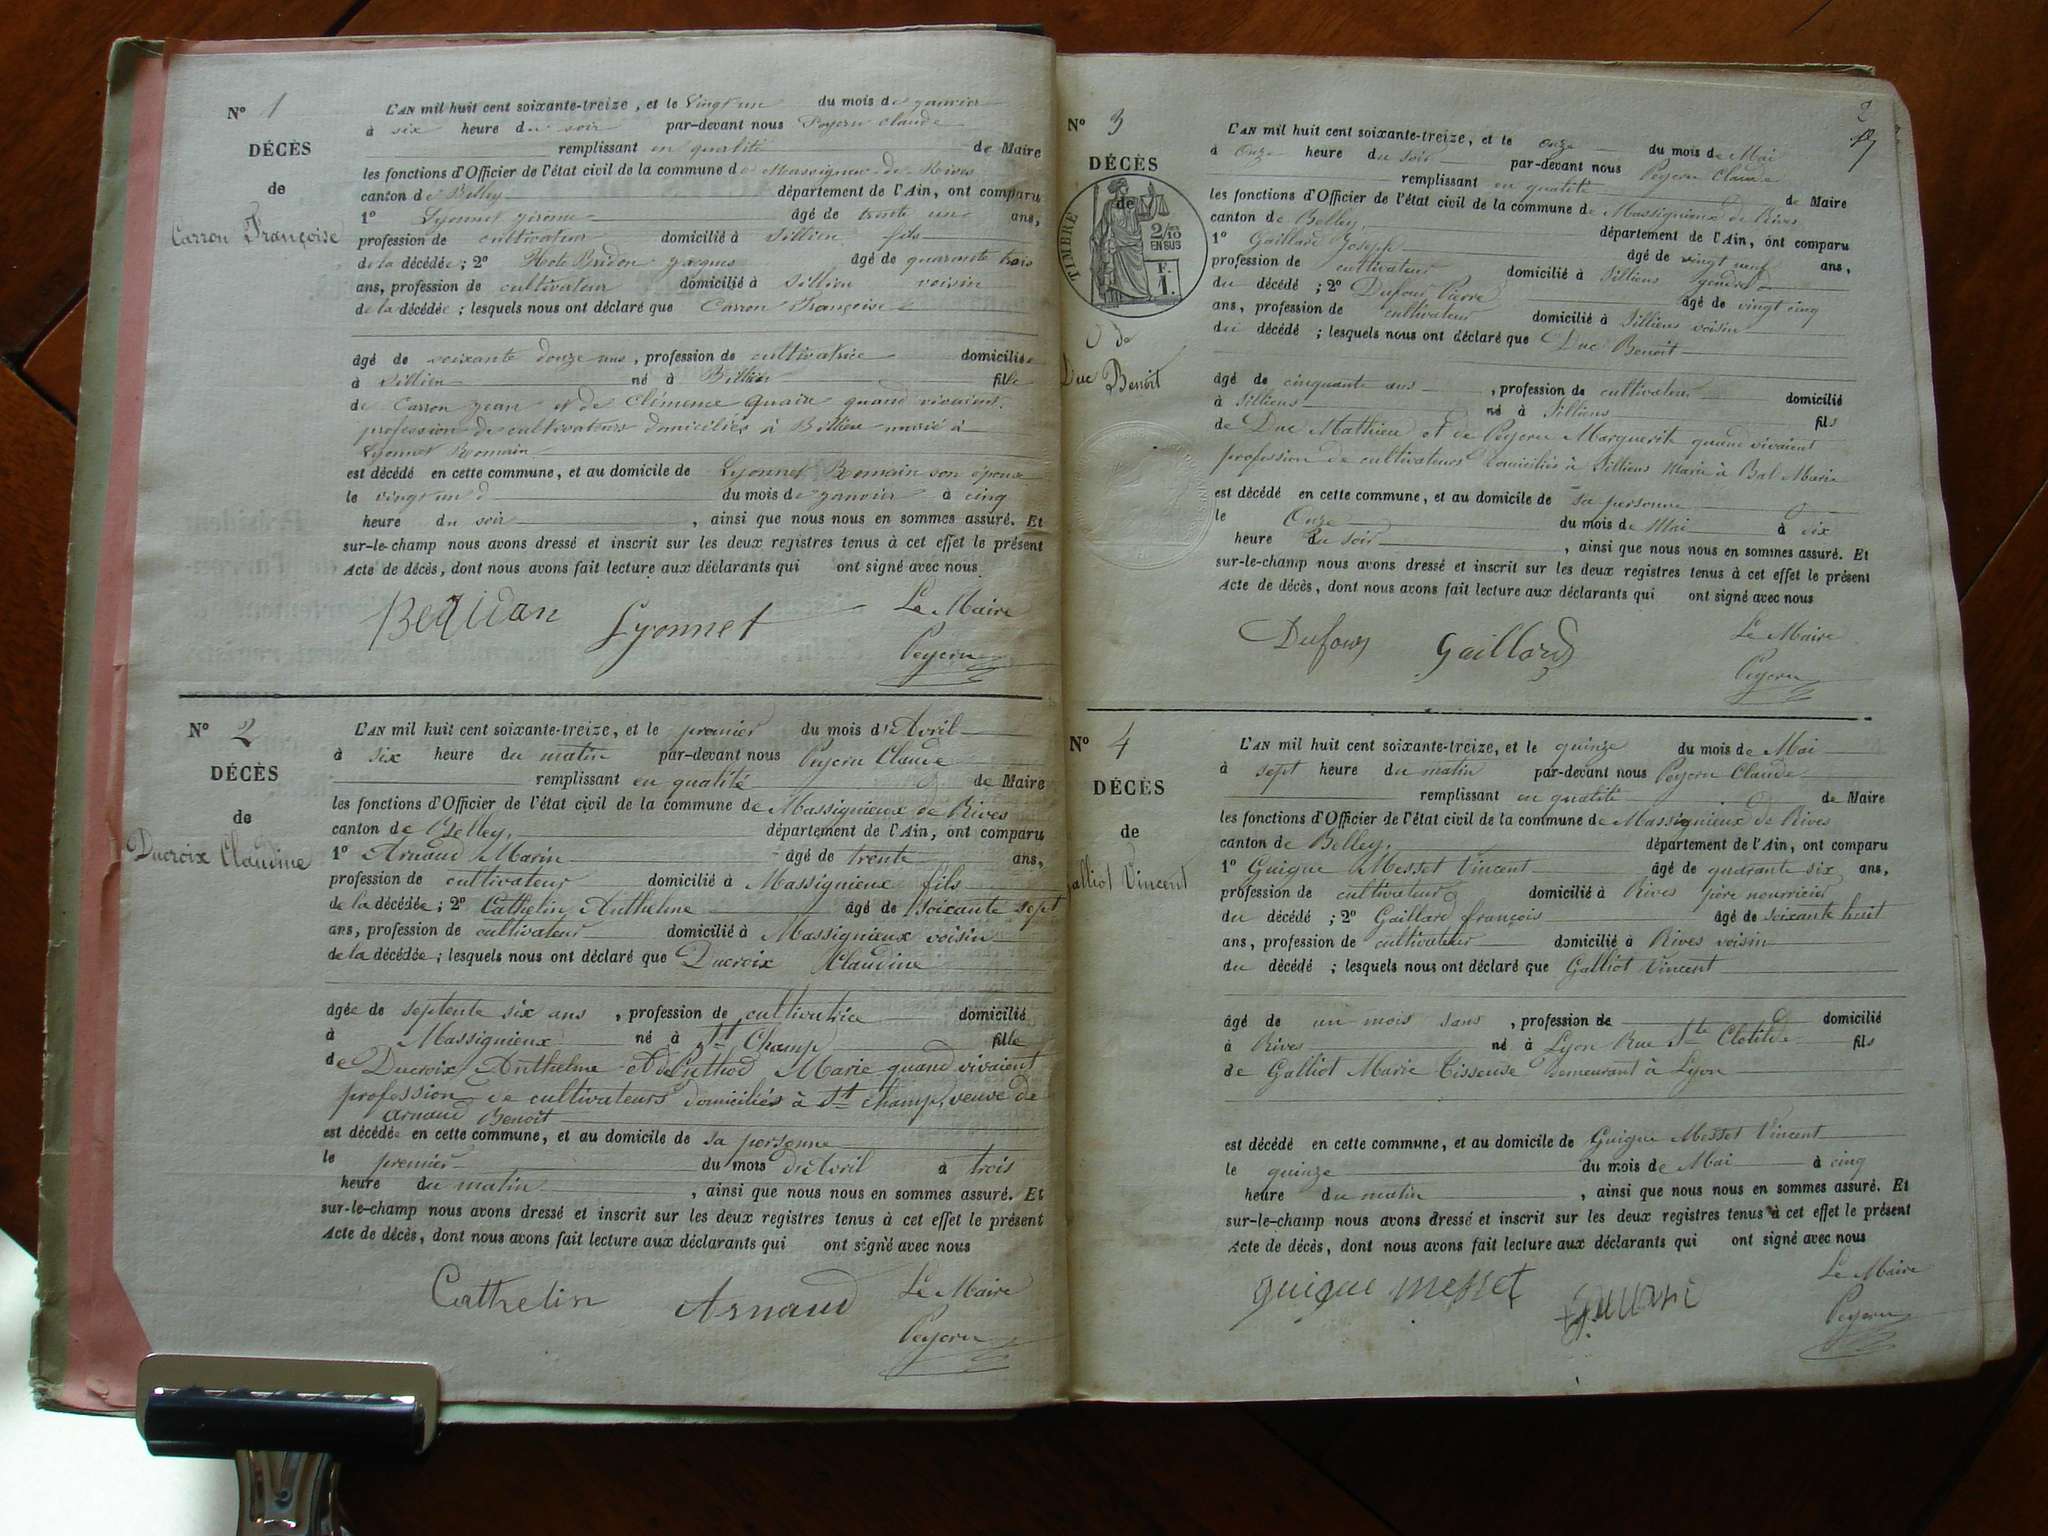 N° 1
DÉCÈS
de
Carron Françoise
L'AN mil huit cent soixante-treize, et le vingt un du mois de janvier
à six heure du soir par-devant nous Peyeru Claude
remplissant en qualité de Maire
les fonctions d'Officier de l'état civil de la commune de Massigneux de Rives
canton de Belley département de l'Ain, ont comparu
1° Lyonnet âgé de trente un ans,
profession de cultivateur domicilié à Sillien fils
de la décédée; 2° jacques âgé de quarante trois
ans, profession de cultivateur domicilié à Sillien voisin
de la décédée; lesquels nous ont déclaré que Carron Françoise
âgé de soixante douze ans, profession de cultivatrice domiciliée
à Sillien né à Billieu fille
de Carron jean et de Clémence quand vivaient
profession de cultivateurs domiciliés à Billieu marié à
Lyonnet Romain
est décédé en cette commune, et au domicile de Lyonnet Romain son époux
le vingt un du mois de janvier à cinq
heure du soir, ainsi que nous nous en sommes assuré. Et
sur-le-champ nous avons dressé et inscrit sur les deux registres tenus à cet effet le présent
Acte de décès, dont nous avons fait lecture aux déclarants qui ont signé avec nous
Lyonnet Le Maire
Peyeru
N° 2
DÉCÈS
de
Ducroix Claudine
L'AN mil huit cent soixante-treize, et le premier du mois d'Avril
à six heure du matin par-devant nous Peyeru Claude
remplissant en qualité de Maire
les fonctions d'Officier de l'état civil de la commune de Massignieux de Rives
canton de Belley, département de l'Ain, ont comparu
1° Arnaud Marin âgé de trente ans,
profession de cultivateur domicilié à Massignieux fils
de la décédée; 2° Cathelin Anthelme âgé de soixante sept
ans, profession de cultivateur domicilié à Massignieux voisin
de la décédée; lesquels nous ont déclaré que Ducroix Claudine
âgée de septente six ans, profession de cultivatrice domicilié
à Massignieux né à St Champ fille
de Ducroix Anthelme et de Marie quand vivaient
profession de cultivateurs domiciliés à St champ, veuve de
Arnaud Benoit
est décédée en cette commune, et au domicile de sa personne
le premier du mois d'Avril à trois
heure du matin, ainsi que nous nous en sommes assuré. Et
sur-le-champ nous avons dressé et inscrit sur les deux registres tenus à cet effet le présent
Acte de décès, dont nous avons fait lecture aux déclarants qui ont signé avec nous
Cathelin Arnaud Le Maire
Peyeru
2
N° 3
DÉCÈS
de
TIMBRE
2/10
EN SUS
F.
1.
de
Duc Benoit
L'AN mil huit cent soixante-treize, et le onze du mois de Mai
à Onze heure du soir par-devant nous Peyeru Claude
remplissant en qualité de Maire
les fonctions d'Officier de l'état civil de la commune de Massignieux de Rives
canton de Belley, département de l'Ain, ont comparu
1° Gaillard Joseph âgé de vingt neuf ans,
profession de cultivateur domicilié à Silliens gendre
du décédé; 2° Dufour Pierre âgé de vingt cinq
ans, profession de cultivateur domicilié à Silliens voisin
du décédé; lesquels nous ont déclaré que Duc Benoit
âgé de cinquante ans, profession de cultivateur domicilié
à Silliens né à Silliens fils
de Duc Mathieu et de Peyeru Marguerite quand vivaient
profession de cultivateurs domiciliés à Silliens marié à Bal Marie
est décédé en cette commune, et au domicile de sa personne
le Onze du mois de Mai à six
heure du soir, ainsi que nous nous en sommes assuré. Et
sur-le-champ nous avons dressé et inscrit sur les deux registres tenus à cet effet le présent
Acte de décès, dont nous avons fait lecture aux déclarants qui ont signé avec nous
Dufour Gaillard Le Maire
Peyeru
N° 4
DÉCÈS
de
Galliot Vincent
L'AN mil huit cent soixante-treize, et le quinze du mois de Mai
à sept heure du matin par-devant nous Peyeru Claude
remplissant en qualité de Maire
les fonctions d'Officier de l'état civil de la commune de Massignieux de Rives
canton de Belley, département de l'Ain, ont comparu
1° Guigue Messet Vincent âgé de quarante six ans,
profession de cultivateur domicilié à Rives père nourricier
du décédé; 2° Gaillard françois âgé de soixante huit
ans, profession de cultivateur domicilié à Rives voisin
du décédé; lesquels nous ont déclaré que Galliot Vincent
âgé de un mois sans, profession de domicilié
à Rives né à Lyon Rue Ste Clotilde fils
de Galliot Marie Tisseuse demeurant à Lyon
est décédé en cette commune, et au domicile de Guigue Messet Vincent
le quinze du mois de Mai à cinq
heure du matin, ainsi que nous nous en sommes assuré. Et
sur-le-champ nous avons dressé et inscrit sur les deux registres tenus à cet effet le présent
Acte de décès, dont nous avons fait lecture aux déclarants qui ont signé avec nous
guigue messet Le Maire
Peyeru